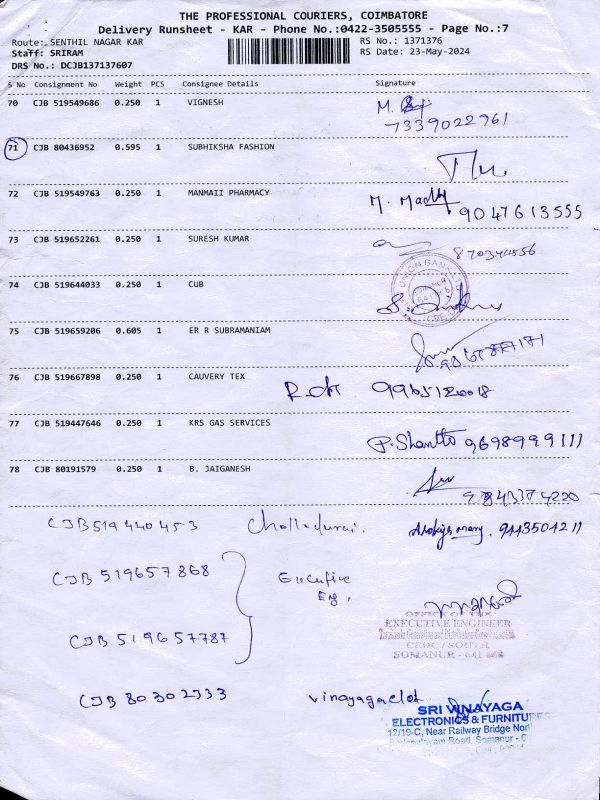 THE PROFESSIONAL COURIERS, COIMBATORE
Delivery Runsheet - KAR - Phone No.:0422-3505555 - Page No.:7
Route: SENTHIL NAGAR KAR RS No.: 1371376
Staff: SRIRAM RS Date: 23-May-2024
DRS No.: DCJB137137607
S No Consignment No Weight PCS Consignee Details Signature
70 CJB 519549686 0.250 1 VIGNESH M.
7339022961
71 CJB 80436952 0.595 1 SUBHIKSHA FASHION
72 CJB 519549763 0.250 1 MANMAII PHARMACY M. 9047613555
73 CJB 519652261 0.250 1 SURESH KUMAR
74 CJB 519644033 0.250 1 CUB
UNION BANK
75 CJB 519659206 0.605 1 ER R SUBRAMANIAM
76 CJB 519667898 0.250 1 CAUVERY TEX
77 CJB 519447646 0.250 1 KRS GAS SERVICES P. Shantto 9698999111
78 CJB 80191579 0.250 1 B. JAIGANESH
CJB 519440453 Chelladurai. 9443504211
CJB 519657868 Excutive
Eng.
OFFICE OF THE
EXECUTIVE ENGINEER
CJB 519657787 CEDC / SOUTH
SOMANUR - 641 668
CJB 80302333 vinayagaelet
SRI VINAYAGA
ELECTRONICS & FURNITURES
12/19-C, Near Railway Bridge North
Road, Somanur -